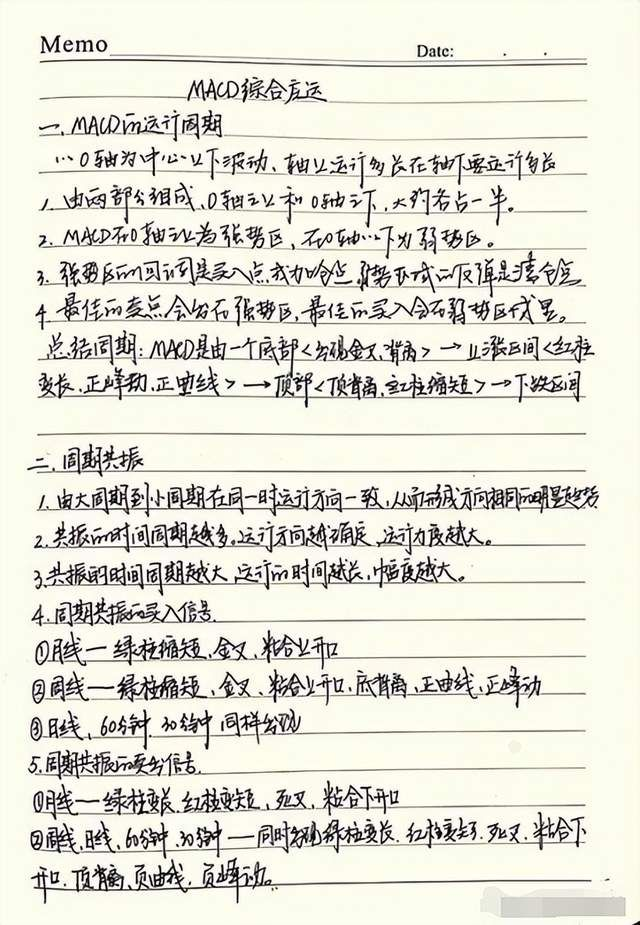 Memo
Date: . .
MACD综合应运
一、MACD的运行周期
以0轴为中心上下波动、轴上运行多长在轴下要运行多长
1、由两部分组成、0轴之上和0轴之下、大约各占一半。
2、MACD在0轴之上为强势区，在0轴以下为弱势区。
3、强势区的回调是买入点或加仓点 弱势区域的反弹是清仓点
4、最佳的卖点会出在强势区，最佳的买入会在弱势区成里。
总结周期：MACD是由一个底部<出现金叉、背离>→上涨区间<红柱
变长、正峰动、正曲线>→顶部<顶背离、红柱缩短>→下跌区间
二、周期共振
1、由大周期到小周期在同一时运行方向一致，从而形成方向相同的明显趋势
2、共振的时间周期越多。运行方向越确定、运行力度越大。
3、共振的时间周期越大、运行的时间越长、幅度越大。
4、周期共振的买入信号.
①月线一绿柱缩短、金叉、粘合上开口
②周线一绿柱缩短、金叉、粘合上开口、底背离、正曲线、正峰动
③日线、60分钟、30分钟 同样出现
5、周期共振的卖出信号.
①月线一绿柱变长、红柱变短、死叉、粘合下开口
②周线、日线、60分钟、30分钟一同时出现绿柱变长、红柱变短、死叉、粘合下
开口、顶背离、负曲线、负峰动。